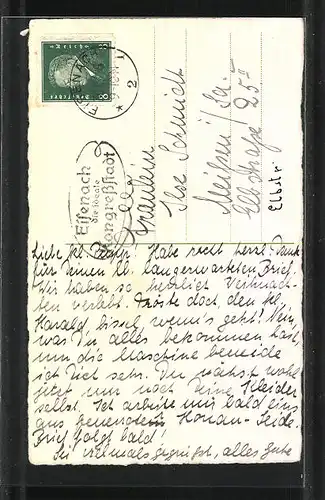 Deutsches Reich
8 8
EISENACH
* 2
Eisenach
die ideale
Kongreßstadt
Fräulein
Ilse Schmidt
Meißen i/Sa.
Elbstraße 25 II
Elbstr.
Liebe kl. Habe recht herzl. Dank
für Deinen lb. langerwarteten Brief.
Wir haben so herrlich Weihnach-
ten verlebt. Tröste doch den kl.
Harald, bissel, wenn's geht! Nein,
was Du alles bekommen hast,
um die Maschine beneide
ich Dich sehr. Du nähst wohl
jetzt nur noch Deine Kleider
selbst. Ich arbeite mir bald eins
aus Honan-Seide.
Brief folgt bald!
Sei vielmals gegrüßt, alles Gute